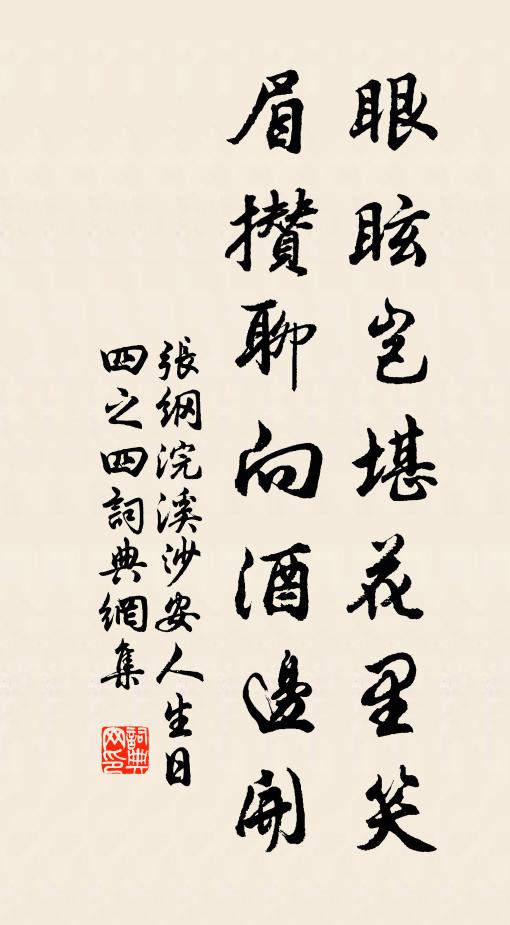 眼眩岂堪花里笑
眉攒聊向酒邊開
張綱浣溪沙安人生日
四之四詞典網集
詞典网印